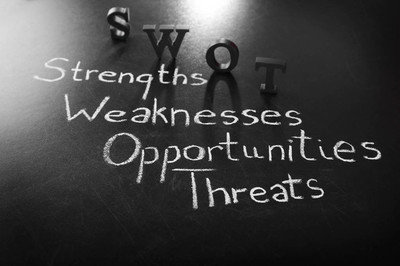 SWOT
Strengths
Weaknesses
Opportunities
Threats